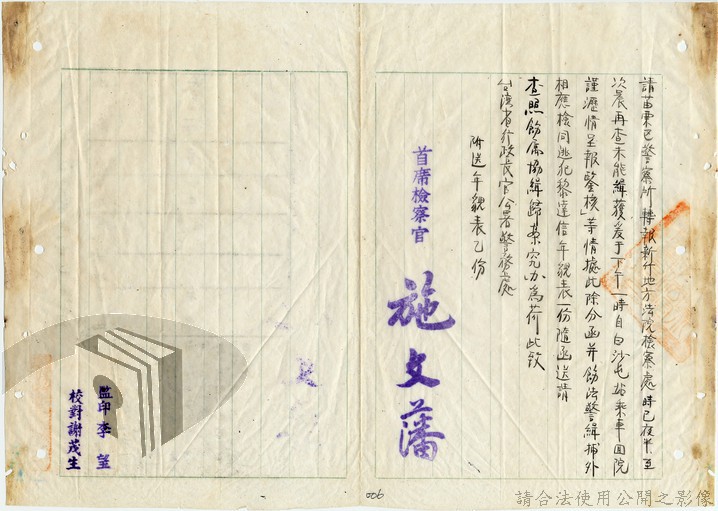 請苗栗區警察所轉報新竹地方法院檢察處時已夜半至
次晨再查未能緝獲爰于下午一時自白沙屯站乘車回院
謹瀝情呈報鑒核」等情據此除分函并飭法警緝捕外
相應檢同逃犯黎達信年貌表一份隨函送請
查照飭屬協緝歸案究办為荷此致
台灣省行政長官公署警務處
附送年貌表乙份
首席檢察官 施文藩
監印李 望
校對謝茂生
006
請合法使用公開之影像